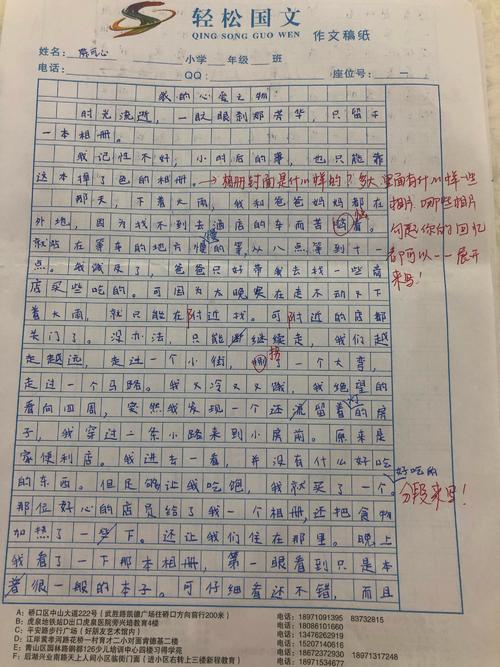 轻松国文
QING SONG GUO WEN
作文稿纸
姓名：陈可心 小学 年级 班
电话： QQ： 座位号：
我的心爱之物
时光流逝，一眨眼刹那芳华，只留下
一本相册。
我记性不好，小时后的事，也只能靠
这本掉了色的相册。→相册封面是什么样的？多大？里面有什么样一些
相片，哪些相片
勾起你们的回忆
都可以一一展开
来吗！
那天，下着大雨，我和爸爸妈妈都在
外地，因为我不到去酒店的车而苦恼着。
就站在等车的地方慢的等，从八点等到十
点。我饿及了，爸爸只好带我去找一些商
店买些吃的。可因为太晚实在走不动又下
着大雨，就只能在附近找。可附近的店都
关门了。没办法，只能继续走，我们越
走越远，走过一个小街，拐了一个大弯，
走过一个马路。我又冷又饿，我绝望的
看向四周，突然我发现一个还流留着灯的房
子，我穿过二条小路来到小房前。原来是
家便利店。我进去一看，并没有什么好吃
好吃的
的东西。但足够让我吃饱，我就买了一个。
分段来吗！
那位好心的店员给了我一个相册，还把食物
加热了一下。还让我们住在那里。晚上
我看了一下那本相册，第一眼看到只是本
着很一般的本子。可仔细看还不错，而且
A：硚口区中山大道222号（武胜路凯德广场往硚口方向前行200米）
B：虎泉地铁站D出口虎泉法院旁兴培教育4楼
C：平安路步行广场（好朋友艺术馆内）
D：江岸黄孝河路花桥一村育才二小对面肯德基二楼
E：青山区园林路钢都126小后门中四楼习得学苑
F：后湖兴业南路天上人间小区临街门面（进小区右转上三楼新程教育）
电话：18971091395 83732815
电话：18086101660
电话：13476262919
电话：15207140616
电话：18672372930 18971318247
电话：18971534677